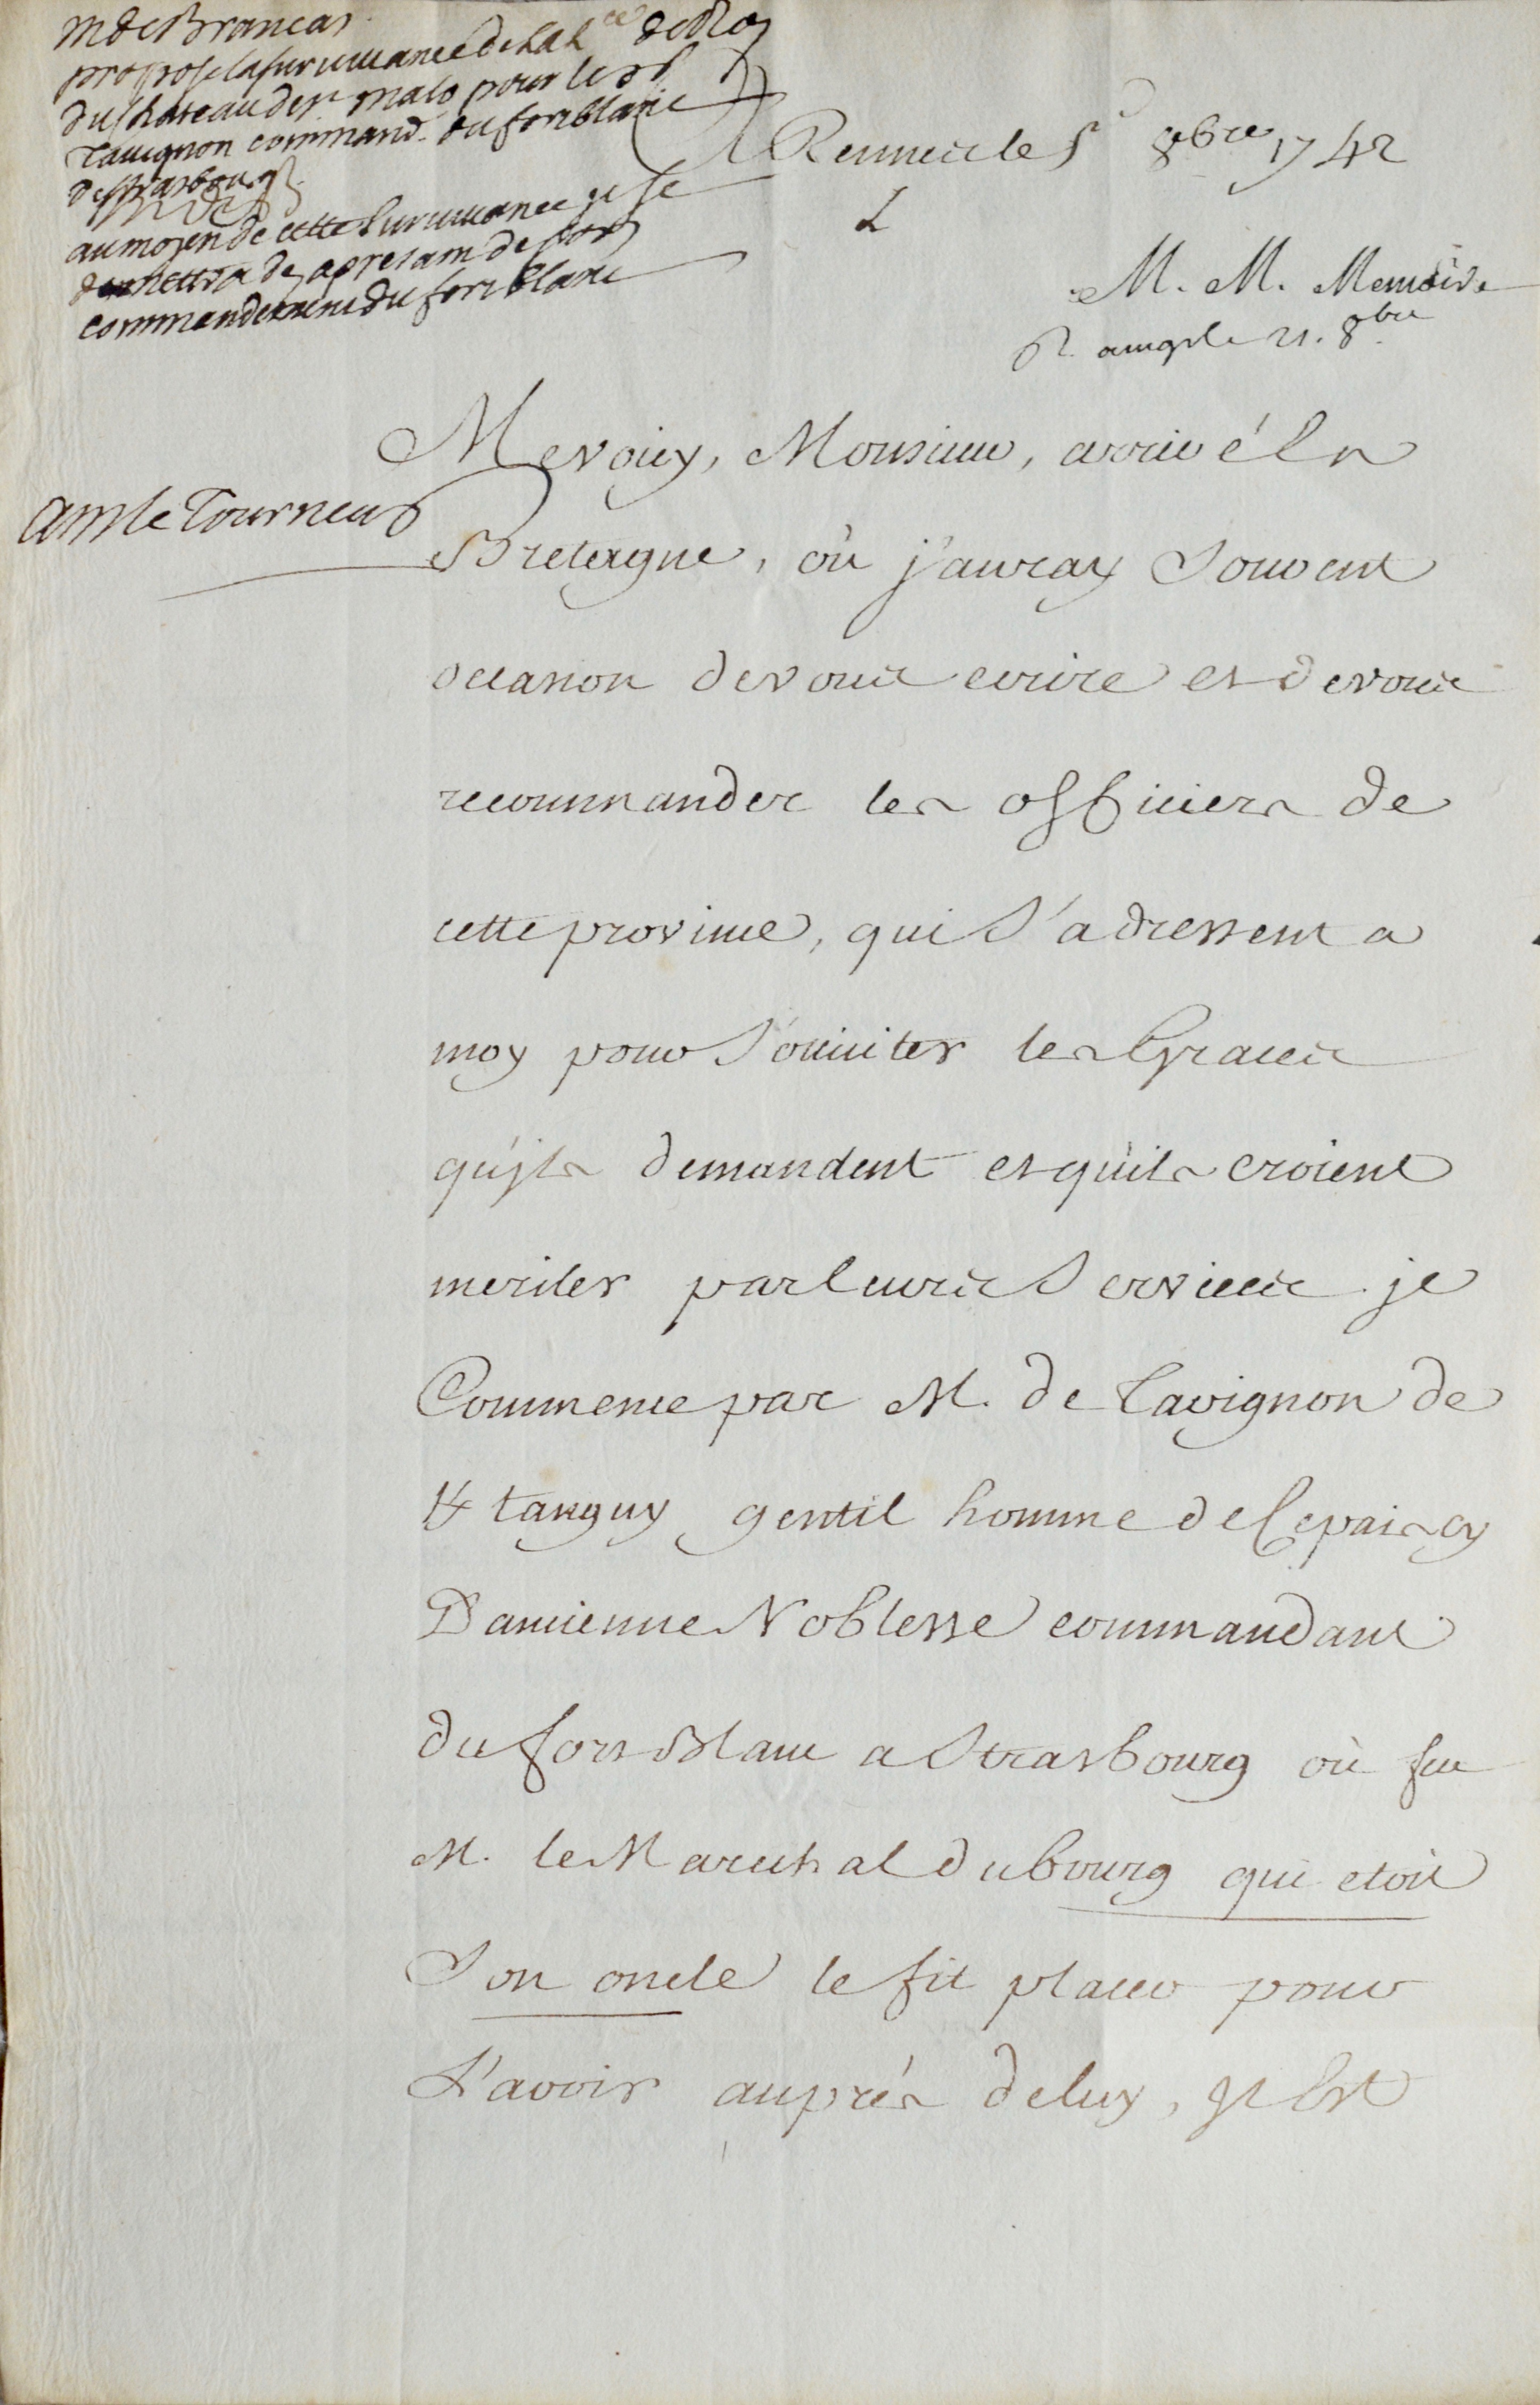 M de Brancas
propose la survivance de la L.ce de Roy
du Chateau de St malo pour le Sr
Tavignon command. du fort blanc
de Strasbourg
au moyen de cette survivance il se
demettra des apresant de son
commandement du fort blanc
A Rennes le 5 8bre 1742
L
M. M. Memoire
R le 21. 8bre
A M le Tourneur
Me voicy, Monsieur, arrivé En
Bretagne, où j'auray Souvent
occasion de vous ecrire et de vous
recommander les officiers de
cette province, qui S'adressent a
moy pour Soliciter les Graces
qu'jls demandent et qu'ils croient
meriter par leurs Services. je
Commence par M. de Tavignon de
Ktanguy gentil homme de Ce pais cy
D'ancienne Noblesse commandant
du fort Blanc a Strasbourg où feu
M. le Marechal dubourg qui etoit
Son oncle le fit placer pour
L'avoir auprés de luy, Jl Est